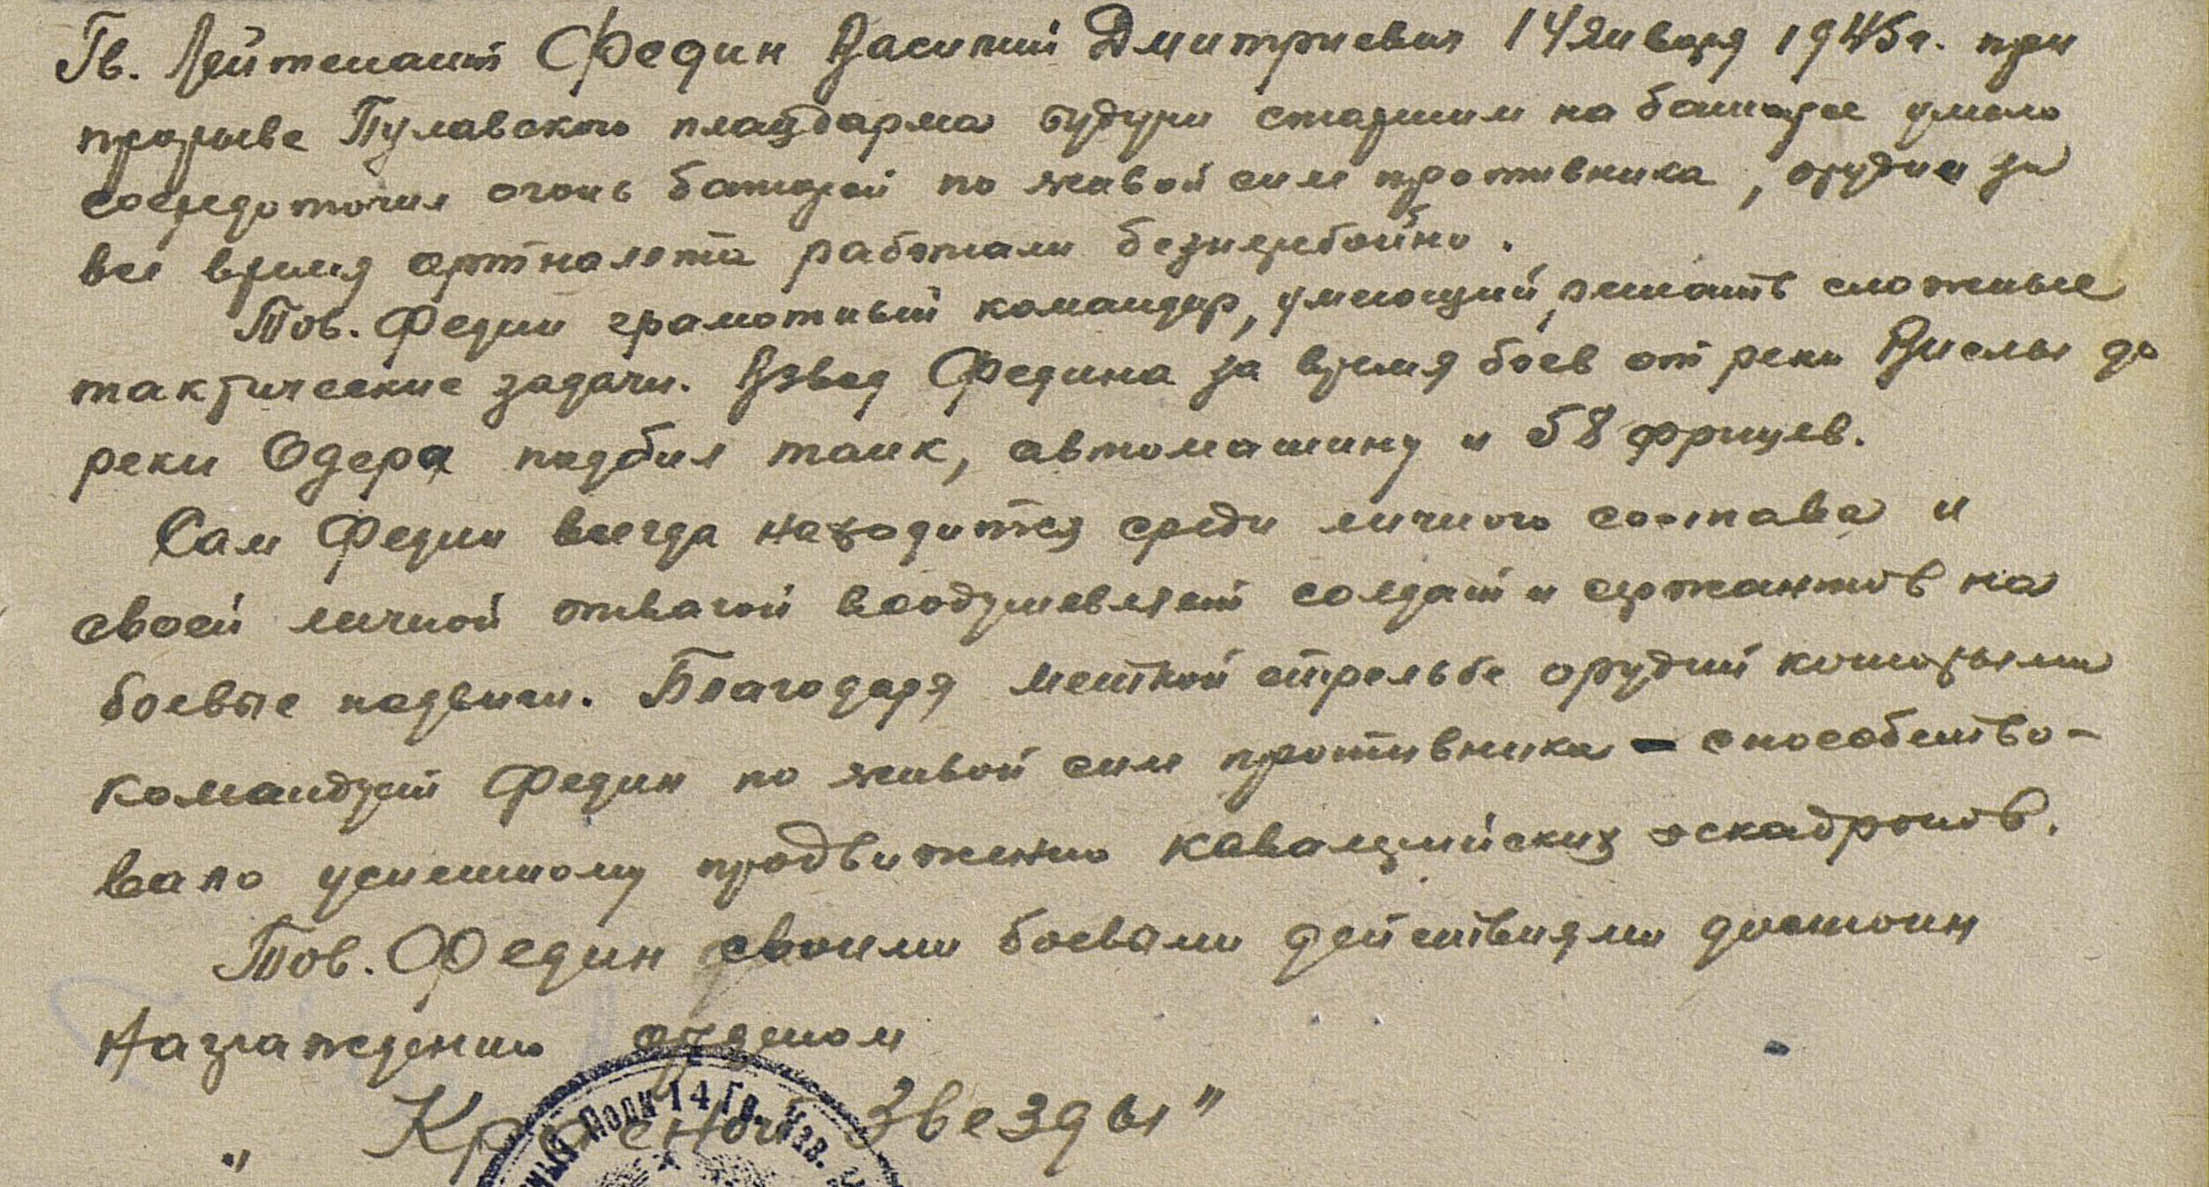 Гв. Лейтенант Федин Василий Дмитриевич 14 января 1945 г. при
прорыве Пулавского плацдарма будучи старшим на батарее умело
сосредоточил огонь батареи по живой силе противника, орудия за
все время артналета работали безперебойно.
Тов. Федин грамотный командир, умеющий решать сложные
тактические задачи. Взвод Федина за время боев от реки Вислы до
реки Одера подбил танк, автомашину и 58 фрицев.
Сам Федин всегда находится среди личного состава и
своей личной отвагой воодушевляет солдат и сержантов на
боевые подвиги. Благодаря меткой стрельбе орудий которыми
командует Федин по живой силе противника - способство-
вало успешному продвижению кавалерийских эскадронов.
Тов. Федин своими боевыми действиями достоин
награждению орденом
„Красной Звезды"
Полк 14 Гв. Кав.